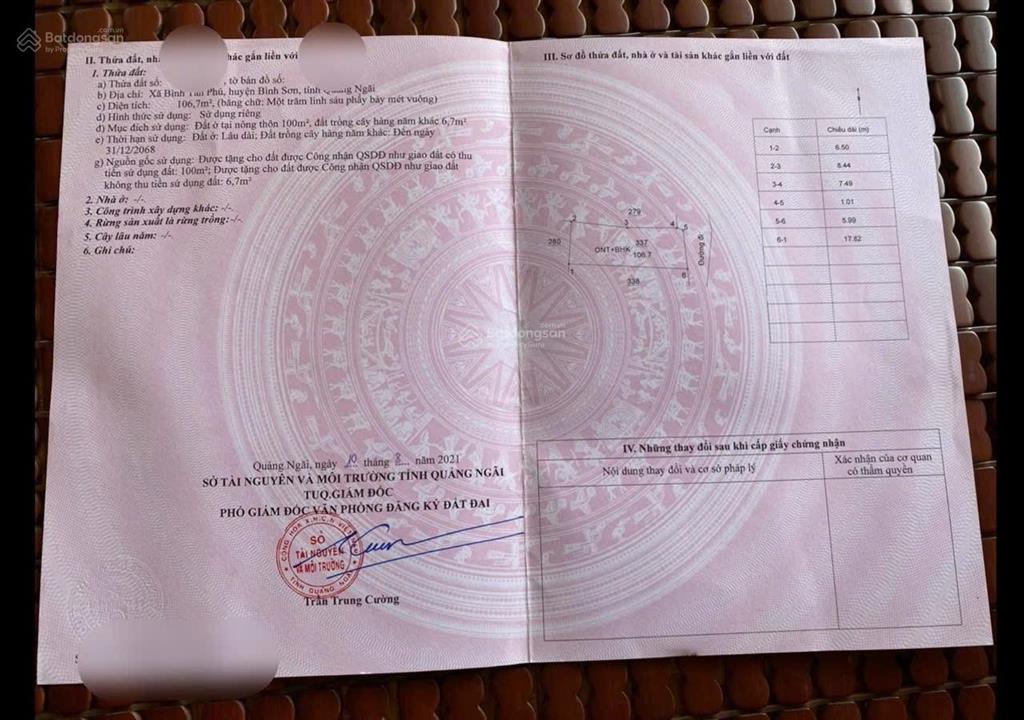 Batdongsan.com.vn
by PropertyGuru
II. Thửa đất, nhà
hác gắn liền với
1. Thửa đất:
a) Thửa đất số: , tờ bản đồ số:
b) Địa chỉ: Xã Bình Tân Phú, huyện Bình Sơn, tỉnh Quảng Ngãi
c) Diện tích: 106,7m², (bằng chữ: Một trăm linh sáu phẩy bảy mét vuông)
d) Hình thức sử dụng: Sử dụng riêng
đ) Mục đích sử dụng: Đất ở tại nông thôn 100m², đất trồng cây hàng năm khác 6,7m²
e) Thời hạn sử dụng: Đất ở: Lâu dài; Đất trồng cây hàng năm khác: Đến ngày
31/12/2068
g) Nguồn gốc sử dụng: Được tặng cho đất được Công nhận QSDĐ như giao đất có thu
tiền sử dụng đất: 100m²; Được tặng cho đất được Công nhận QSDĐ như giao đất
không thu tiền sử dụng đất: 6,7m²
2. Nhà ở: -/-.
3. Công trình xây dựng khác: -/-.
4. Rừng sản xuất là rừng trồng:-/-.
5. Cây lâu năm: -/-.
6. Ghi chú:
Quảng Ngãi, ngày 10 tháng 8 năm 2021
SỞ TÀI NGUYÊN VÀ MÔI TRƯỜNG TỈNH QUẢNG NGÃI
TUQ.GIÁM ĐỐC
PHÓ GIÁM ĐỐC VĂN PHÒNG ĐĂNG KÝ ĐẤT ĐAI
CỘNG HÒA X.H.C.N VIỆT NAM
SỞ
TÀI NGUYÊN
VÀ MÔI TRƯỜNG
TỈNH QUẢNG NGÃI
Trần Trung Cường
III. Sơ đồ thửa đất, nhà ở và tài sản khác gắn liền với đất
Cạnh Chiều dài (m)
1-2 6.50
2-3 8.44
3-4 7.49
4-5 1.01
5-6 5.99
6-1 17.62
279
2 3 4 5
280
ONT+BHK 337
106.7
Đường đi
1 6
338
Batdongsan.com.vn
by PropertyGuru
IV. Những thay đổi sau khi cấp giấy chứng nhận
Nội dung thay đổi và cơ sở pháp lý
Xác nhận của cơ quan
có thẩm quyền